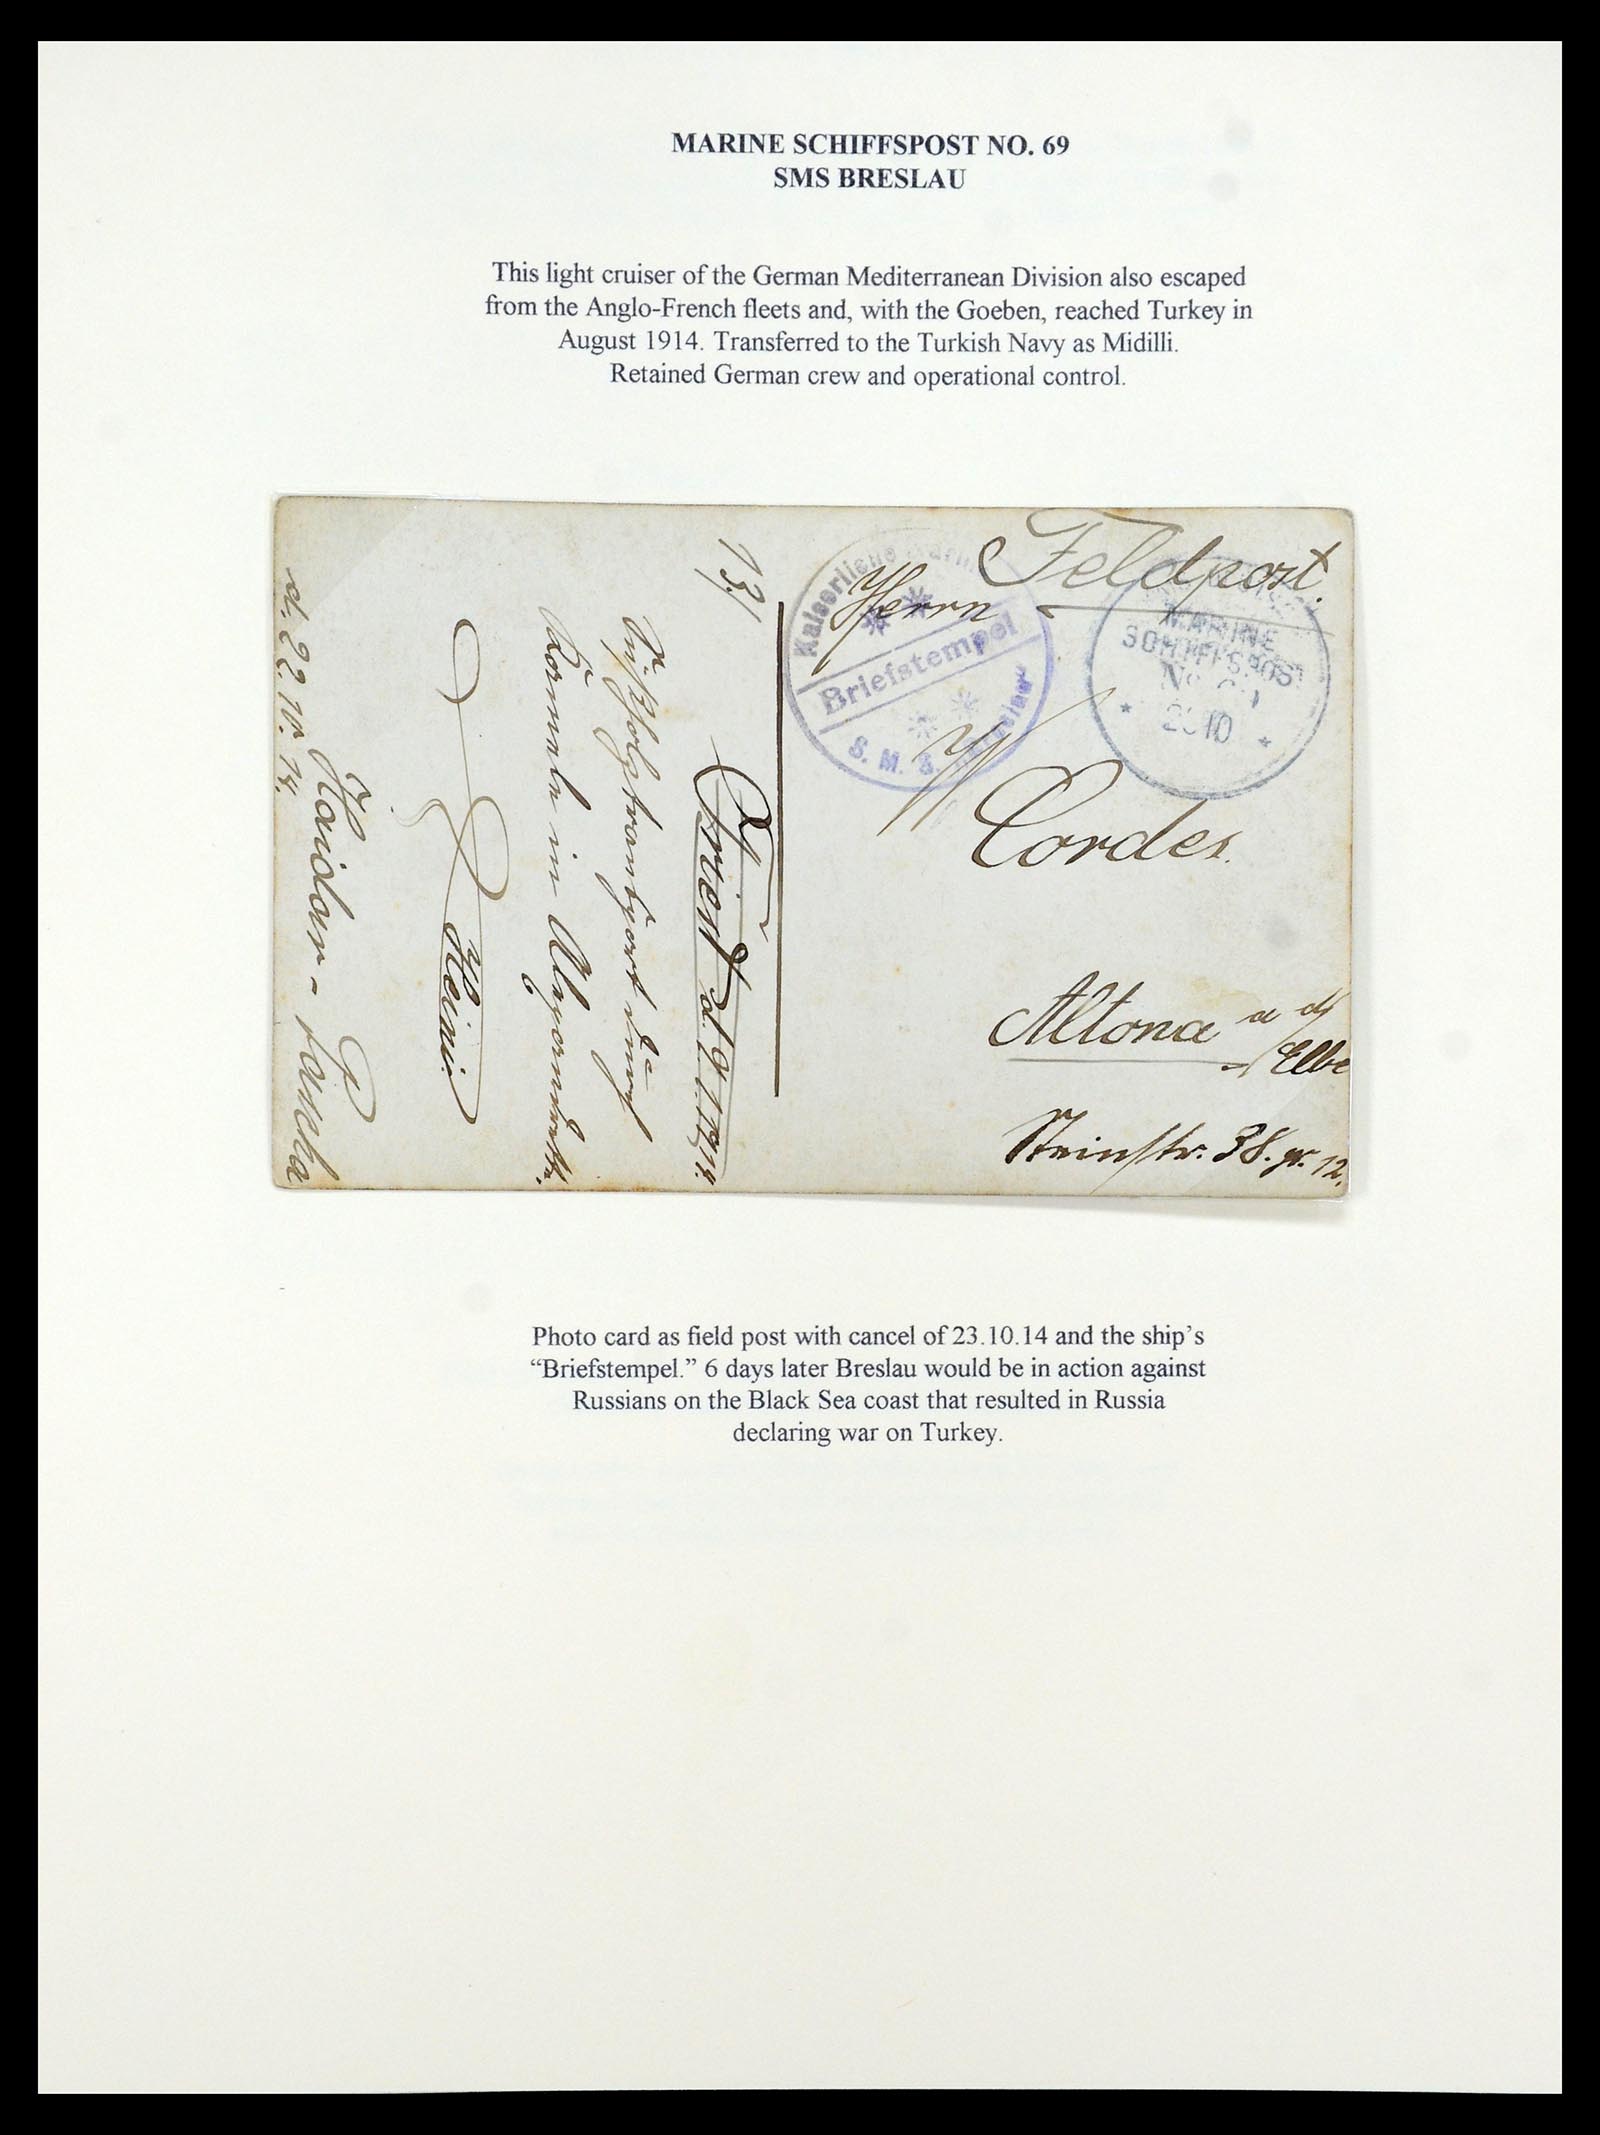 MARINE SCHIFFSPOST NO. 69
SMS BRESLAU
This light cruiser of the German Mediterranean Division also escaped
from the Anglo-French fleets and, with the Goeben, reached Turkey in
August 1914. Transferred to the Turkish Navy as Midilli.
Retained German crew and operational control.
Feldpost.
Herrn
W Cordes.
Altona a d/
Elbe
Steinstr. 38. gr. 12.
Kaiserliche Marine
Briefstempel
S. M. S. Breslau
MARINE
SCHIFFSPOST
No
10
13/
Orient d. 9.1.1914.
Holztransport durch
Kamele in
Heini
Haidar-Pascha
d. 22.10.14.
Photo card as field post with cancel of 23.10.14 and the ship's
“Briefstempel.” 6 days later Breslau would be in action against
Russians on the Black Sea coast that resulted in Russia
declaring war on Turkey.